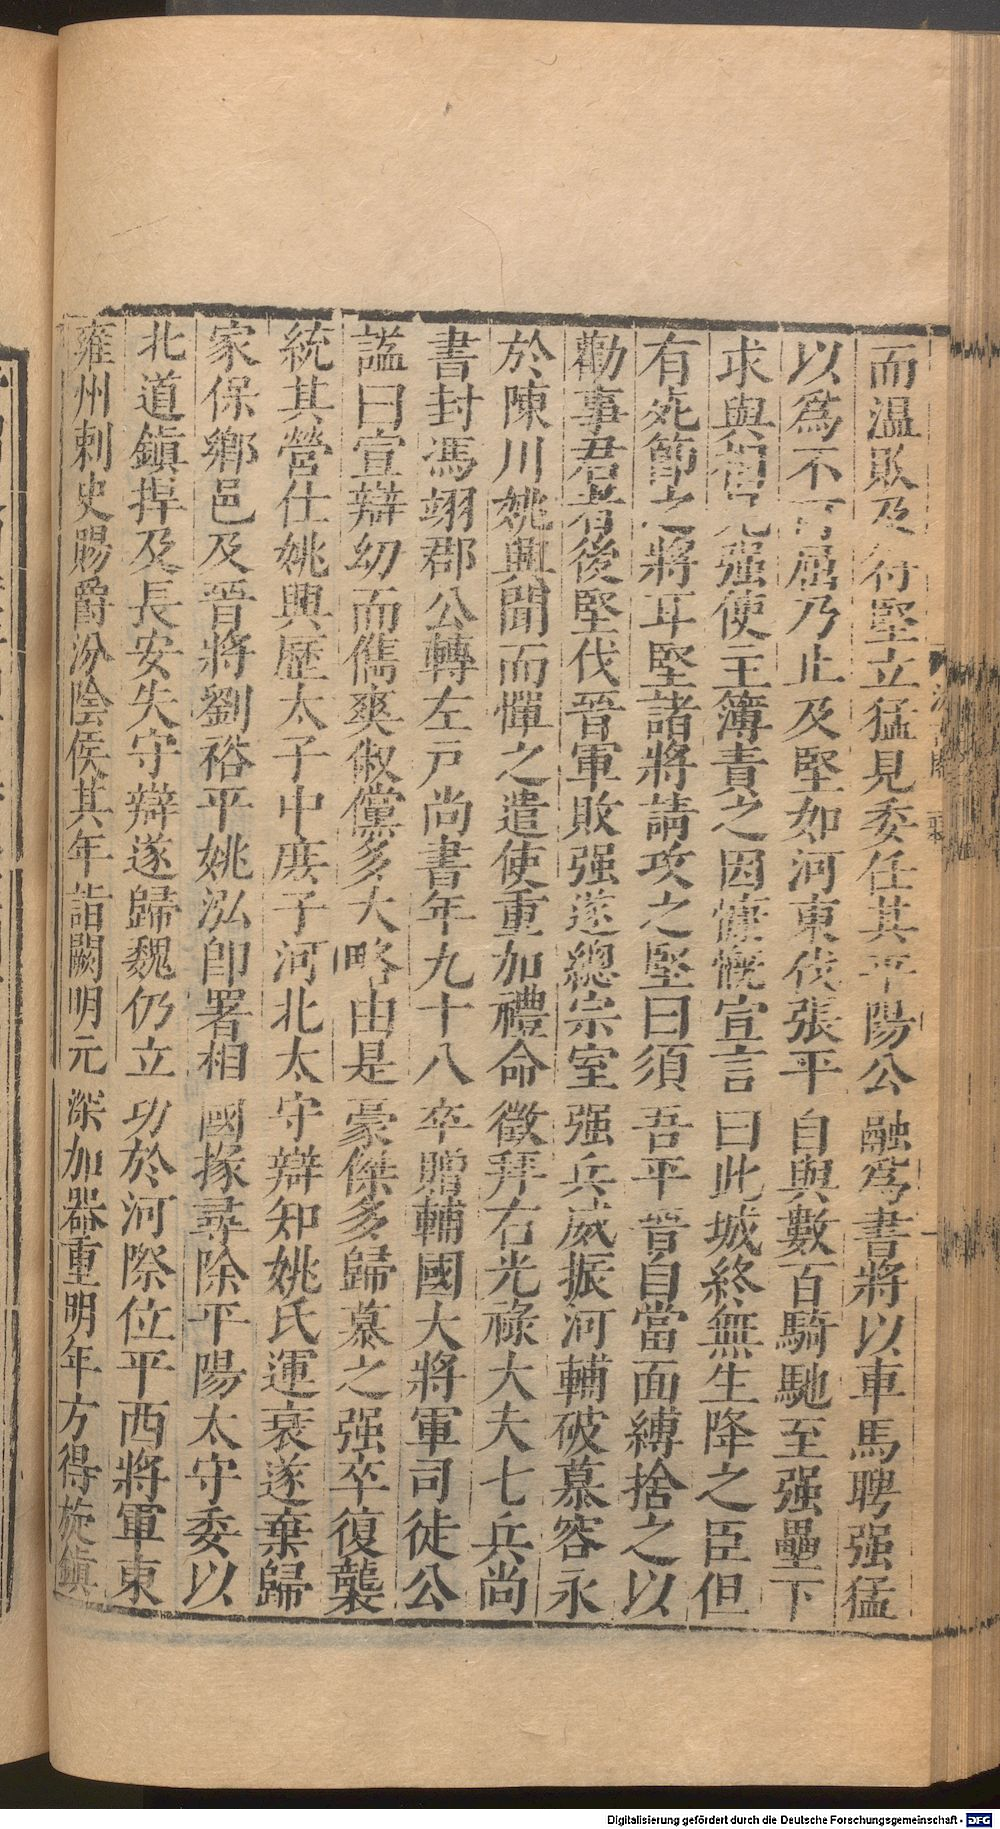 而温敗及苻堅立猛見委任其平陽公融爲書將以車馬聘强猛
以爲不可屈乃止及堅如河東伐張平自與數百騎馳至强壘下
求與相見强使主簿責之因慷慨宣言曰此城終無生降之臣但
有死節之將耳堅諸將請攻之堅曰須吾平晉自當面縛捨之以
勸事君者後堅伐晉軍敗强遂總宗室强兵威振河輔破慕容永
於陳川姚興聞而憚之遣使重加禮命徵拜右光祿大夫七兵尚
書封馮翊郡公轉左戸尚書年九十八卒贈輔國大將軍司徒公
謚曰宣辯幼而儁爽俶儻多大略由是豪傑多歸慕之强卒復襲
統其營仕姚興歷太子中庶子河北太守辯知姚氏運衰遂棄歸
家保鄉邑及晉將劉裕平姚泓卽署相國掾尋除平陽太守委以
北道鎮捍及長安失守辯遂歸魏仍立功於河際位平西將軍東
雍州刺史賜爵汾陰侯其年詣闕明元深加器重明年方得旋鎮
Digitalisierung gefördert durch die Deutsche Forschungsgemeinschaft - DFG